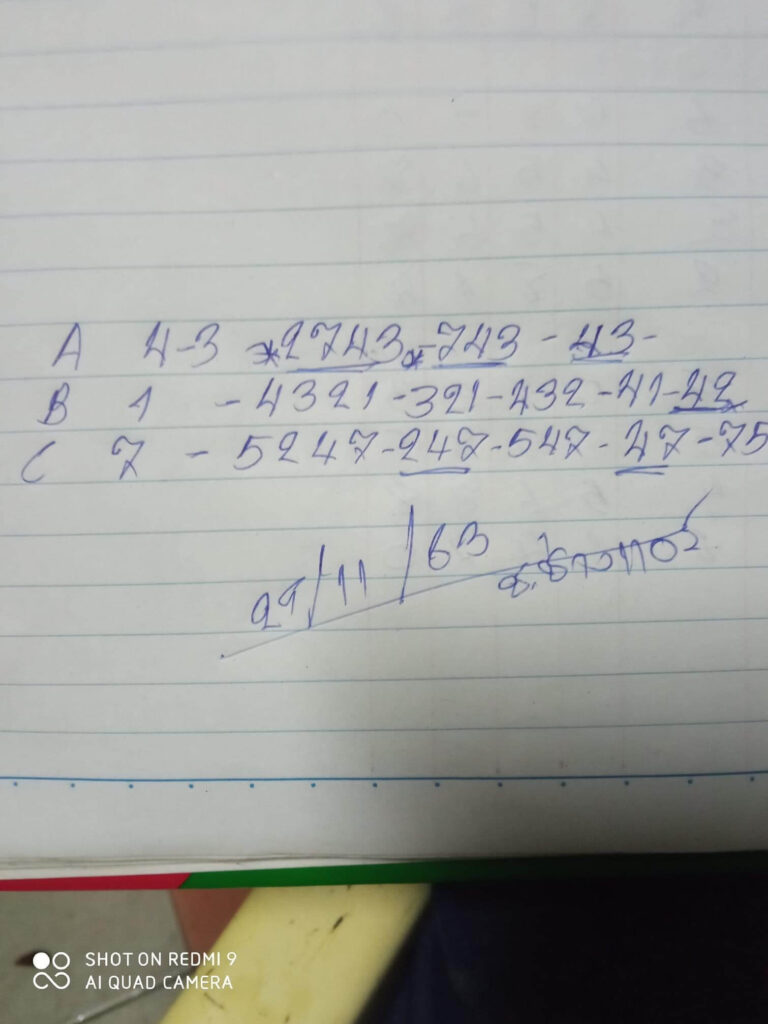 A 4-3 *2743*-743 - 43-
B 1 - 4321-321-432-41-42
C 7 - 5247-247-547-47-75
29/11/63
SHOT ON REDMI 9
AI QUAD CAMERA